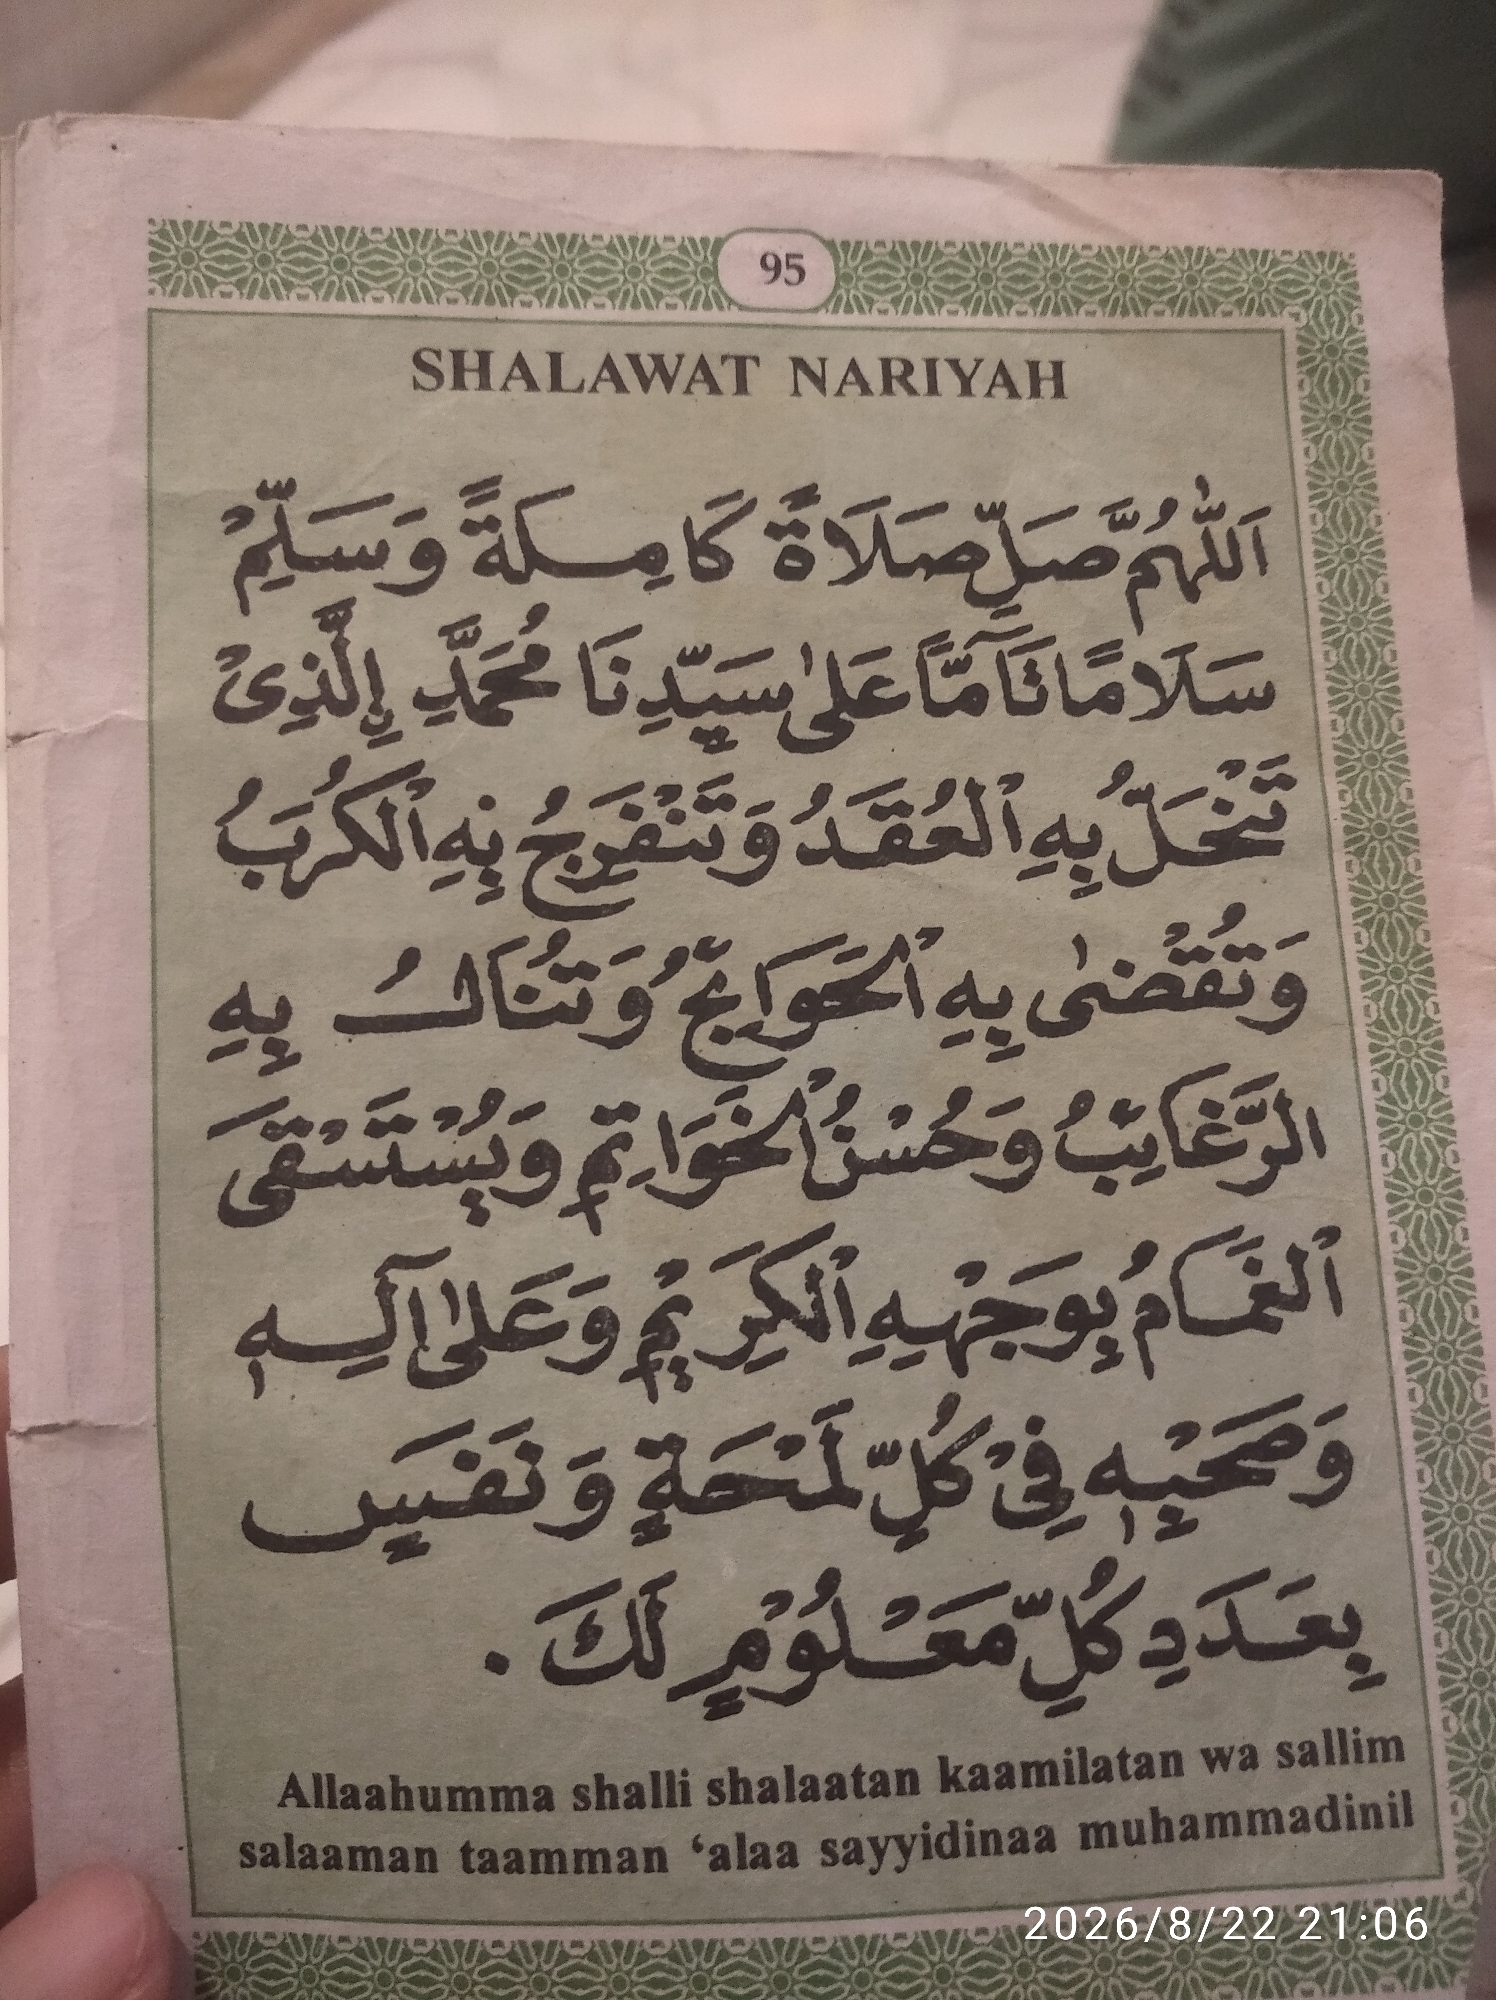 95
SHALAWAT NARIYAH
اَللّٰهُمَّ صَلِّ صَلَاةً كَامِلَةً وَسَلِّمْ
سَلَامًا تَآمًّا عَلٰى سَيِّدِنَا مُحَمَّدِ اِلَّذِىْ
تَنْحَلُّ بِهِ ٱلْعُقَدُ وَتَنْفَرِجُ بِهِ ٱلْكُرَبُ
وَتُقْضٰى بِهِ ٱلْحَوَائِجُ وَتُنَالُ بِهِ
الرَّغَائِبُ وَحُسْنُ ٱلْخَوَاتِمِ وَيُسْتَسْقَى
ٱلْغَمَامُ بِوَجْهِهِ ٱلْكَرِيْمِ وَعَلٰى آلِهٖ
وَصَحْبِهٖ فِىْ كُلِّ لَمْحَةٍ وَنَفَسٍ
بِعَدَدِ كُلِّ مَعْلُوْمٍ لَكَ .
Allaahumma shalli shalaatan kaamilatan wa sallim
salaaman taamman ‘alaa sayyidinaa muhammadinil
2026/8/22 21:06